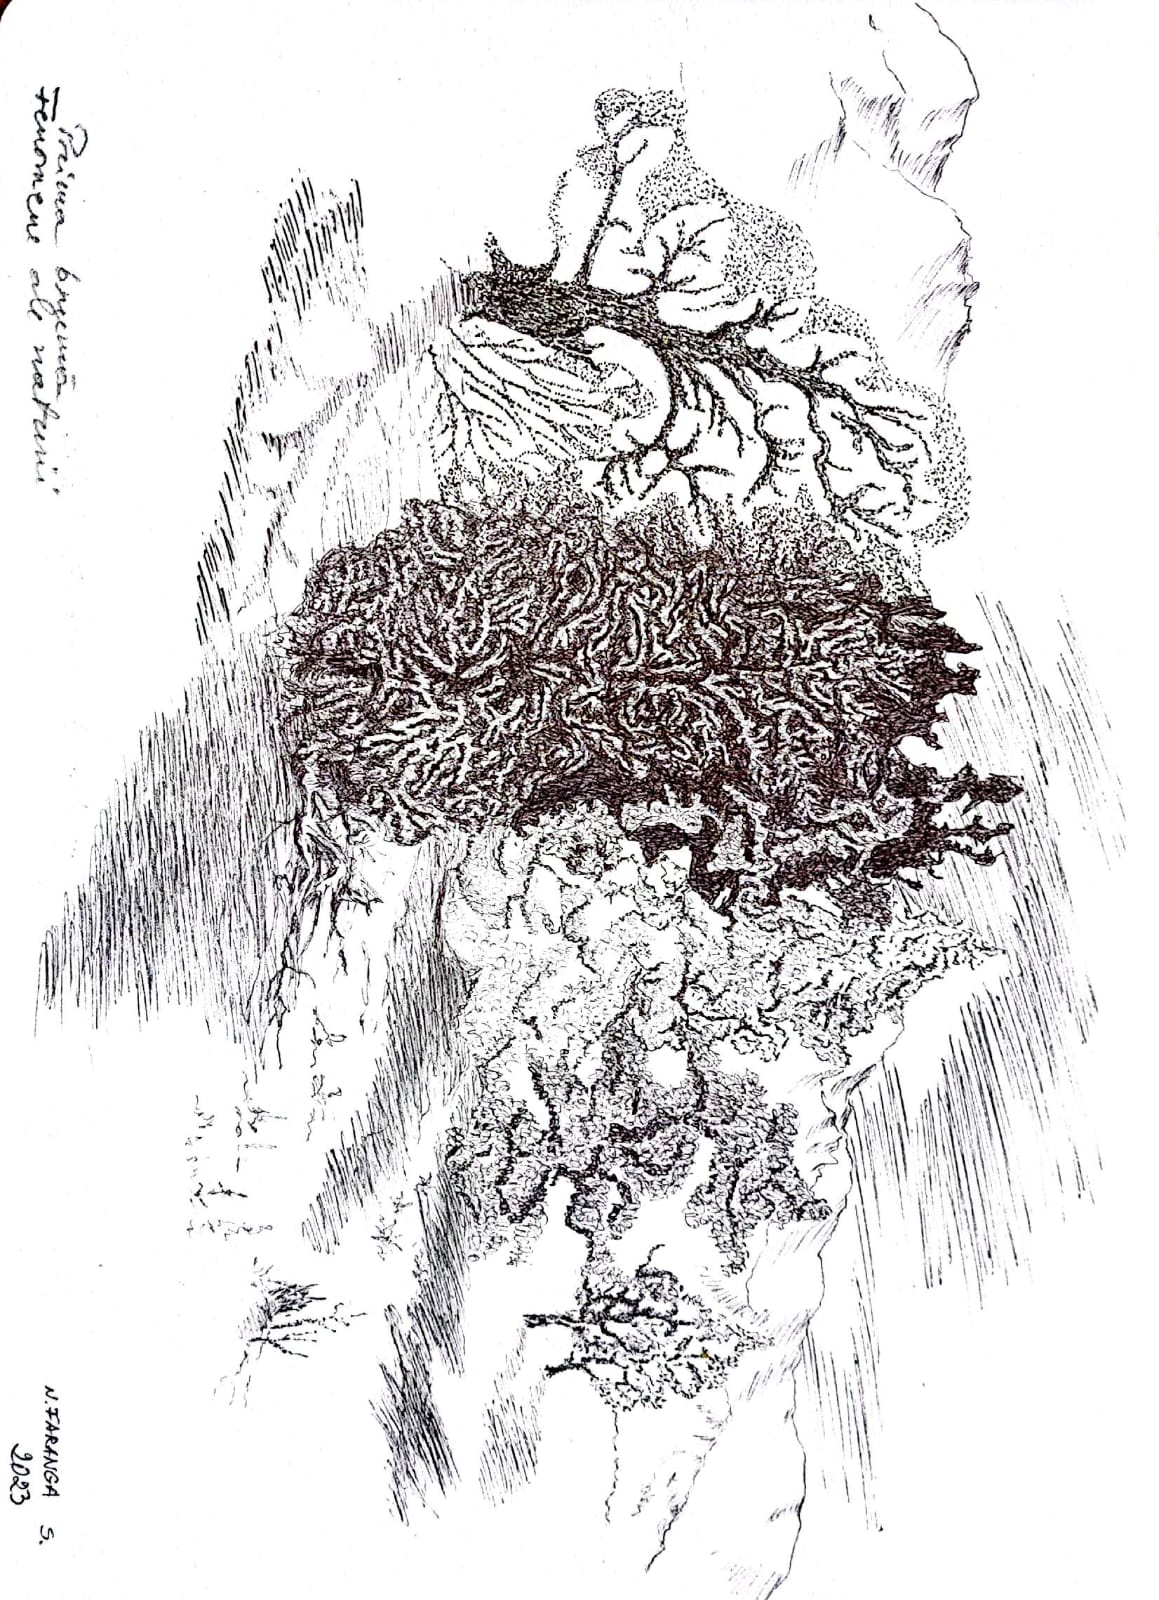 Prima brumă
Fenomene ale naturii
N. FARANGA S.
2023